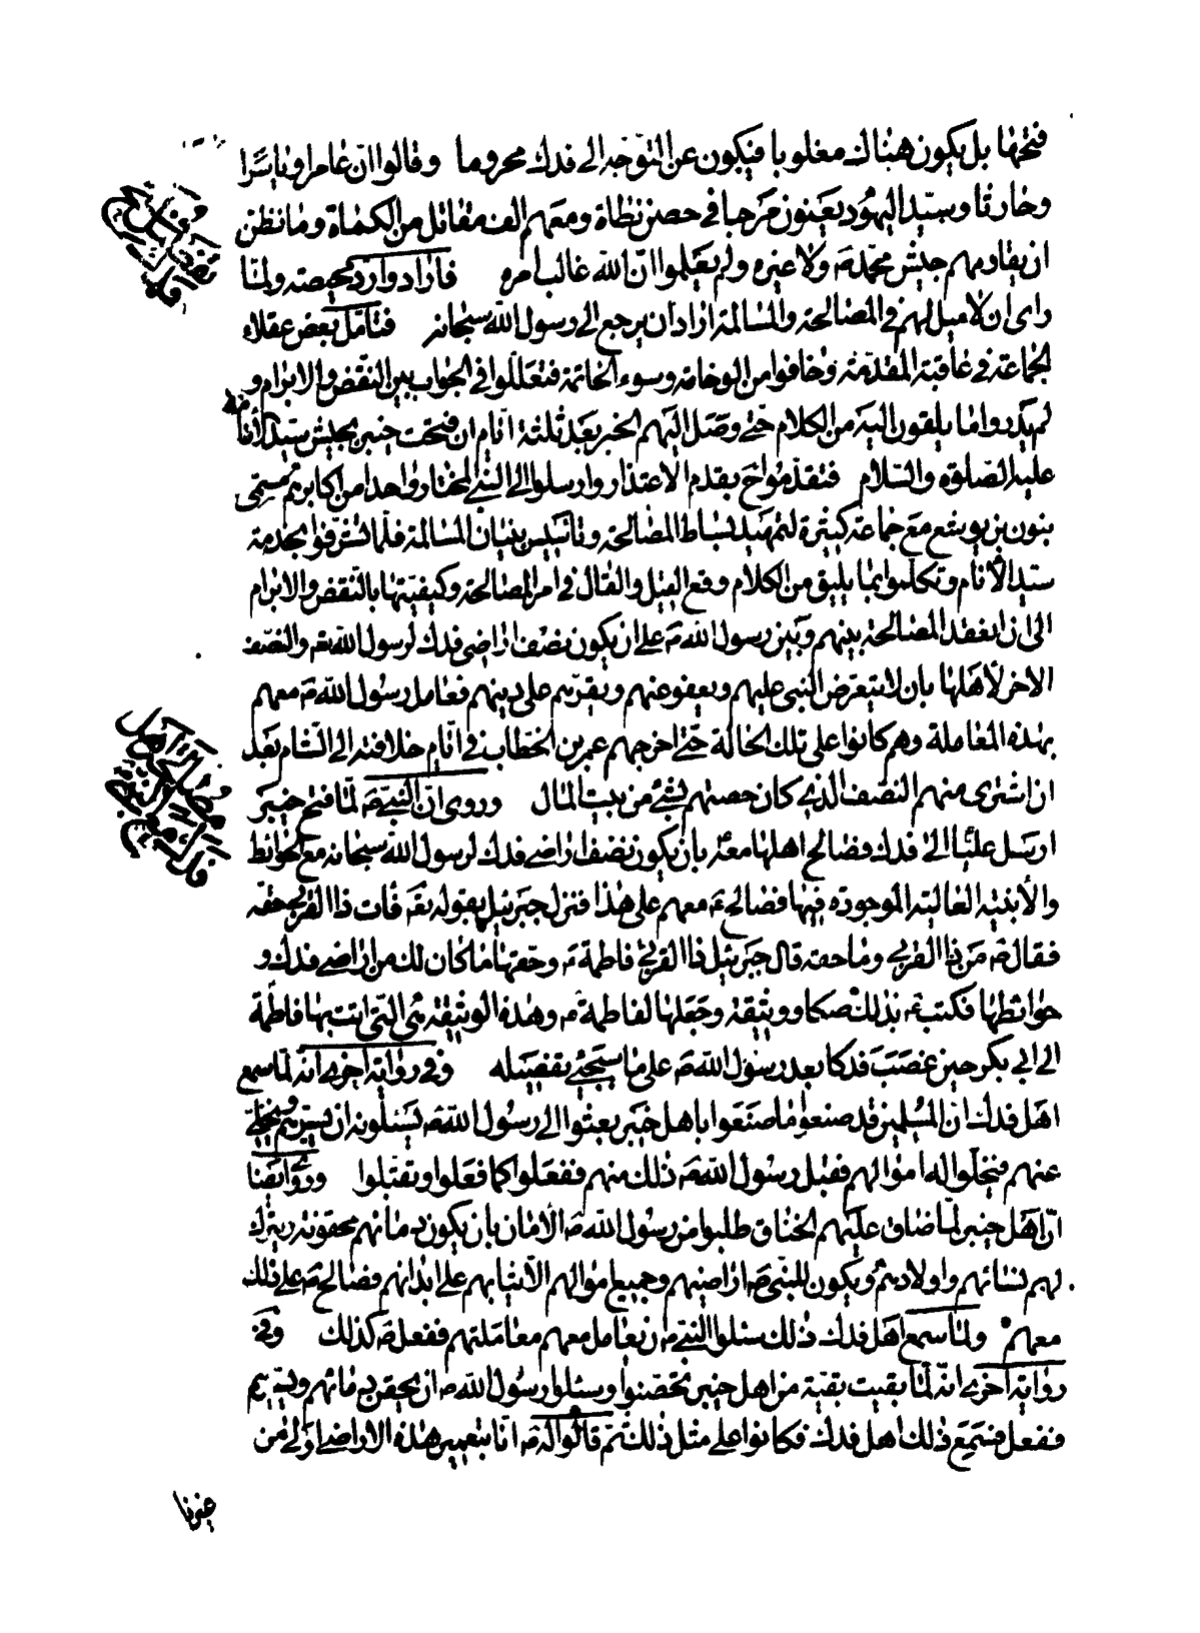 فتحها بل يكون هناك مغلوبا فيكون عن التوجه الى فدك محروما وقالوا ان عامرا وياسرا
وحارثا وسيد اليهود يعنون مرحبا في حصن نطاة ومعهم الف مقاتل من الكماة وما نظن
ان يقاومهم جيش محمد ص ولا غيره ولم يعلموا ان الله غالب امره فاراد وارد محيصته ولما
راى ان لا ميل لهم في المصالحة والمسالمة اراد ان يرجع الى رسول الله سبحانه فتامل بعض عقلاء
الجماعة في عاقبة المقدمة وخافوا من الوخامة وسوء الخاتمة فتعللوا في الجواب بين النقض والابرام و
لم يدروا ما يلقون اليه من الكلام حتى وصل اليهم الخبر بعد ثلثة ايام ان فتحت خيبر بجيش سيد الأنام
عليه الصلوة والسلام فتقدموا ح بقدم الاعتذار وارسلوا الى النبي المختار واحدا من اكابرهم يسمى
بنون بن يوشع مع جماعة كثيرة لتمهيد بساط المصالحة وتاسيس بنيان المسالمة فلما تشرفوا بخدمة
سيد الأنام وتكلموا بما يليق من الكلام وقع القيل والقال في امر المصالحة وكيفيتها بالنقض والابرام
الى ان انعقد المصالحة بينهم وبين رسول الله ص على ان يكون نصف اراضى فدك لرسول الله ص والنصف
الاخر لأهلها بان لا يتعرض النبي عليهم ويعفو عنهم ويقرهم على دينهم فعامل رسول الله ص معهم
بهذه المعاملة وهم كانوا على تلك الحالة حتى اخرجهم عمر بن الخطاب في ايام خلافته الى الشام بعد
ان اشترى منهم النصف الذي كان حصتهم بشئ من بيت المال وروى ان النبي ص لما فتح خيبر
ارسل عليا الى فدك فصالح اهلها معه بان يكون نصف اراضى فدك لرسول الله سبحانه مع الحوائط
والأبنية العالية الموجودة فيها فصالح ع معهم على هذا فنزل جبرئيل بقوله تع فات ذا القربى حقه
فقال ص من ذا القربى وما حقه قال جبرئيل ذا القربى فاطمة ع وحقها ما كان لك من اراضى فدك و
حوائطها فكتب ص بذلك صكا ووثيقة وجعلها لفاطمة ع وهذه الوثيقة هي التي اتت بها فاطمة
الى ابي بكر حين غصب فدكا بعد رسول الله ص على ما سيجئ تفصيله وفي رواية اخرى انه لما سمع
اهل فدك ان المسلمين قد صنعوا ما صنعوا باهل خيبر بعثوا الى رسول الله ص يسئلونه ان يسيرهم ويخلي
عنهم فيخلوا له اموالهم فقبل رسول الله ص ذلك منهم ففعلوا كما فعلوا وتقبلوا وروى ايضا
ان اهل خيبر لما ضاق عليهم الخناق طلبوا من رسول الله ص الأمان بان يكون دمائهم محقونة ويترك
لهم نسائهم واولادهم ويكون للنبي ص اراضيهم وجميع اموالهم الا ثيابهم على ابدانهم فصالح ص على ذلك
معهم ولما سمع اهل فدك ذلك سئلوا النبي ص ان يعامل معهم معاملتهم ففعل ص كذلك وفي
رواية اخرى انه لما بقيت بقية من اهل خيبر تحصنوا وسئلوا رسول الله ص ان يحقن دمائهم ويسيرهم
ففعل فسمع ذلك اهل فدك فكانوا على مثل ذلك ثم قالوا له ص انا بتعمير هذه الاراضى اولى من
غيرنا